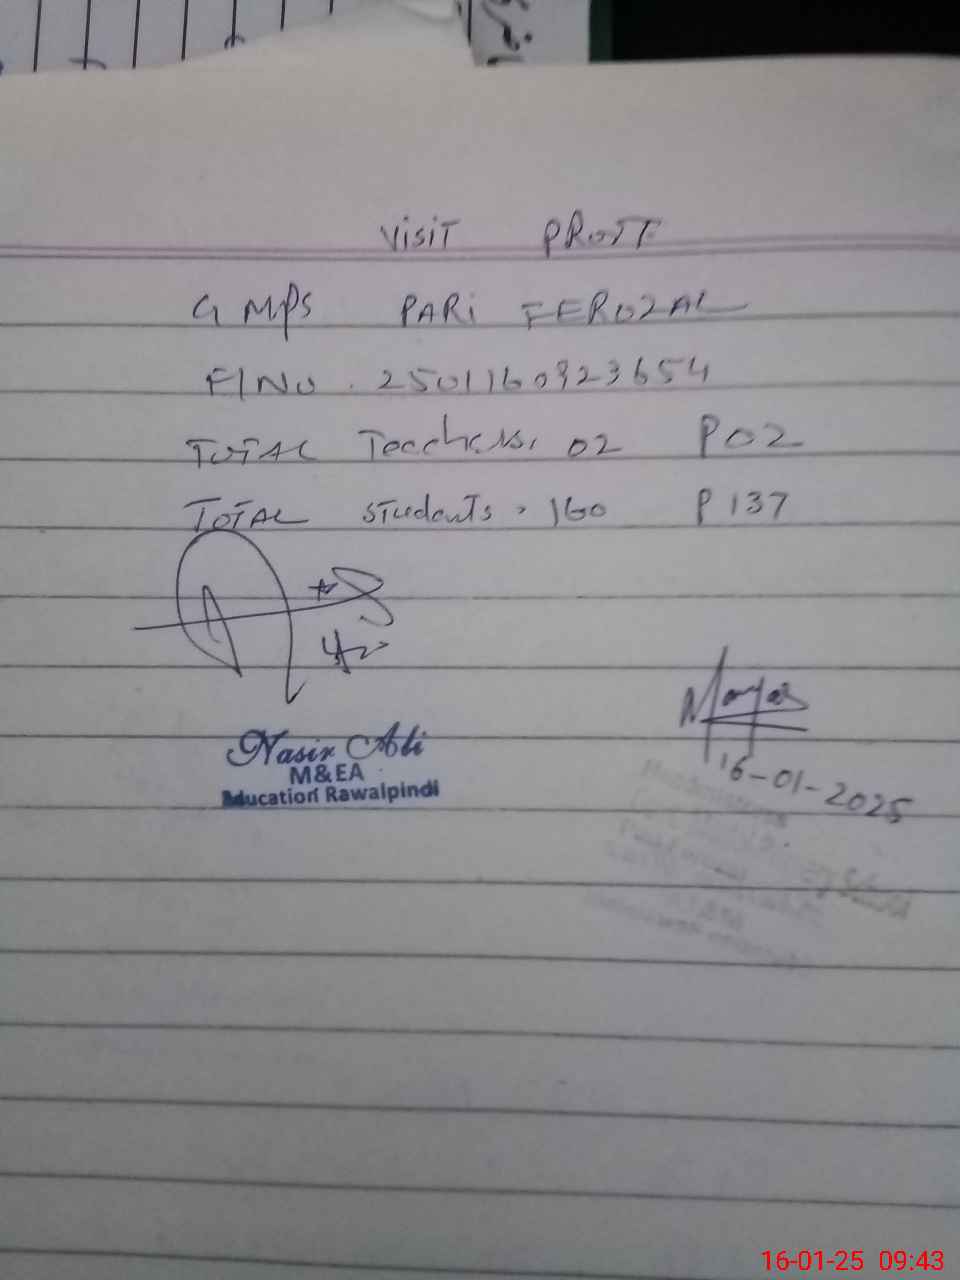 VISIT PROTT
G MPS PARI FEROZAL
F/NO. 2501160923654
TOTAL Teachers. 02 P 02
TOTAL Students. 160 P 137
Nasir Ali
M&EA
Education Rawalpindi
16-01-2025
16-01-25 09:43